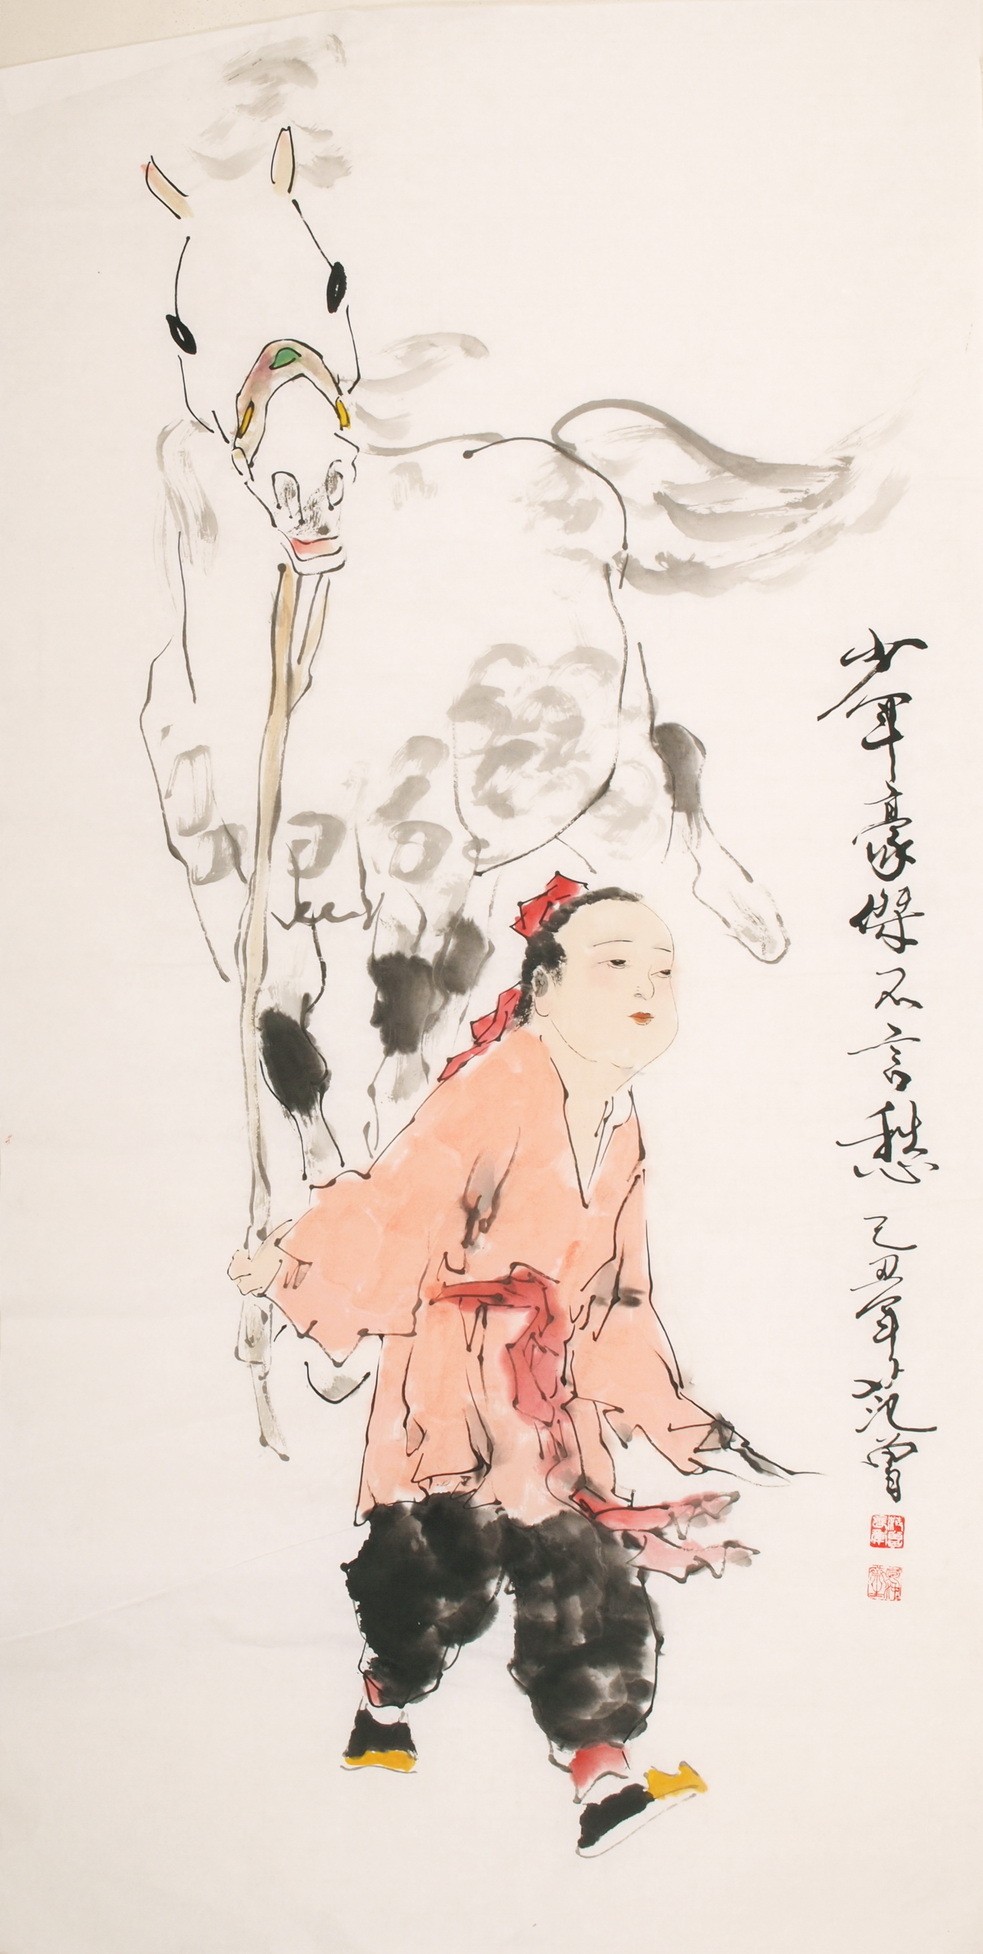 少年豪傑不言愁
己丑年范曾